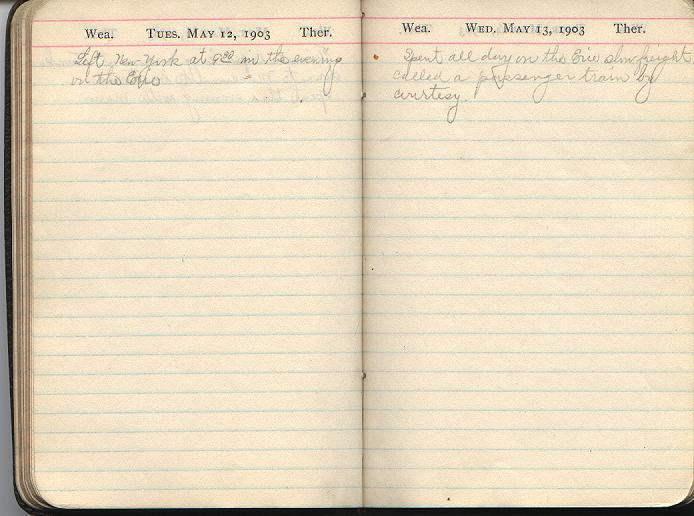 Wea. TUES. MAY 12, 1903 Ther.
Left New York at 9:20 in the evening
on the Erie
Wea. WED. MAY 13, 1903 Ther.
Spent all day on the Erie slow freight
called a passenger train by
courtesy.